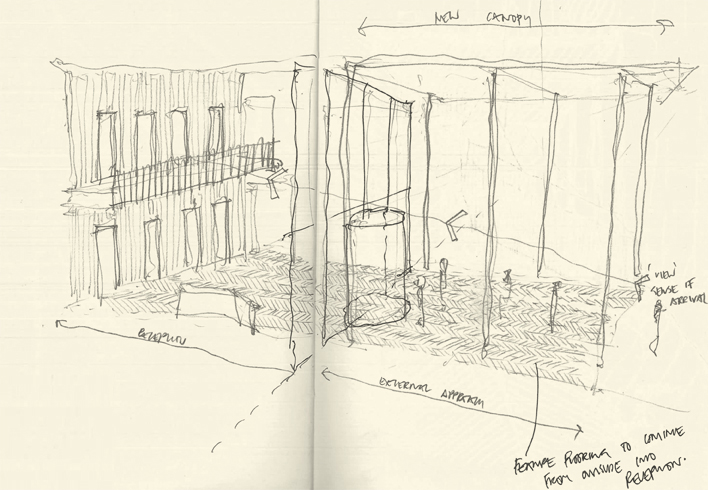 NEW CANOPY
'VIEW'
SENSE OF
ARRIVAL
RECEPTION
EXTERNAL APPROACH
FEATURE FLOORING TO CONTINUE
FROM OUTSIDE INTO
RECEPTION.